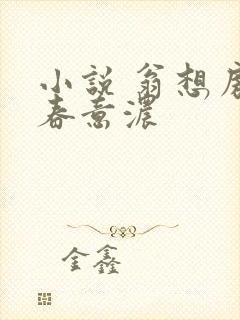 小說 翁想房
春意濃
金鑫